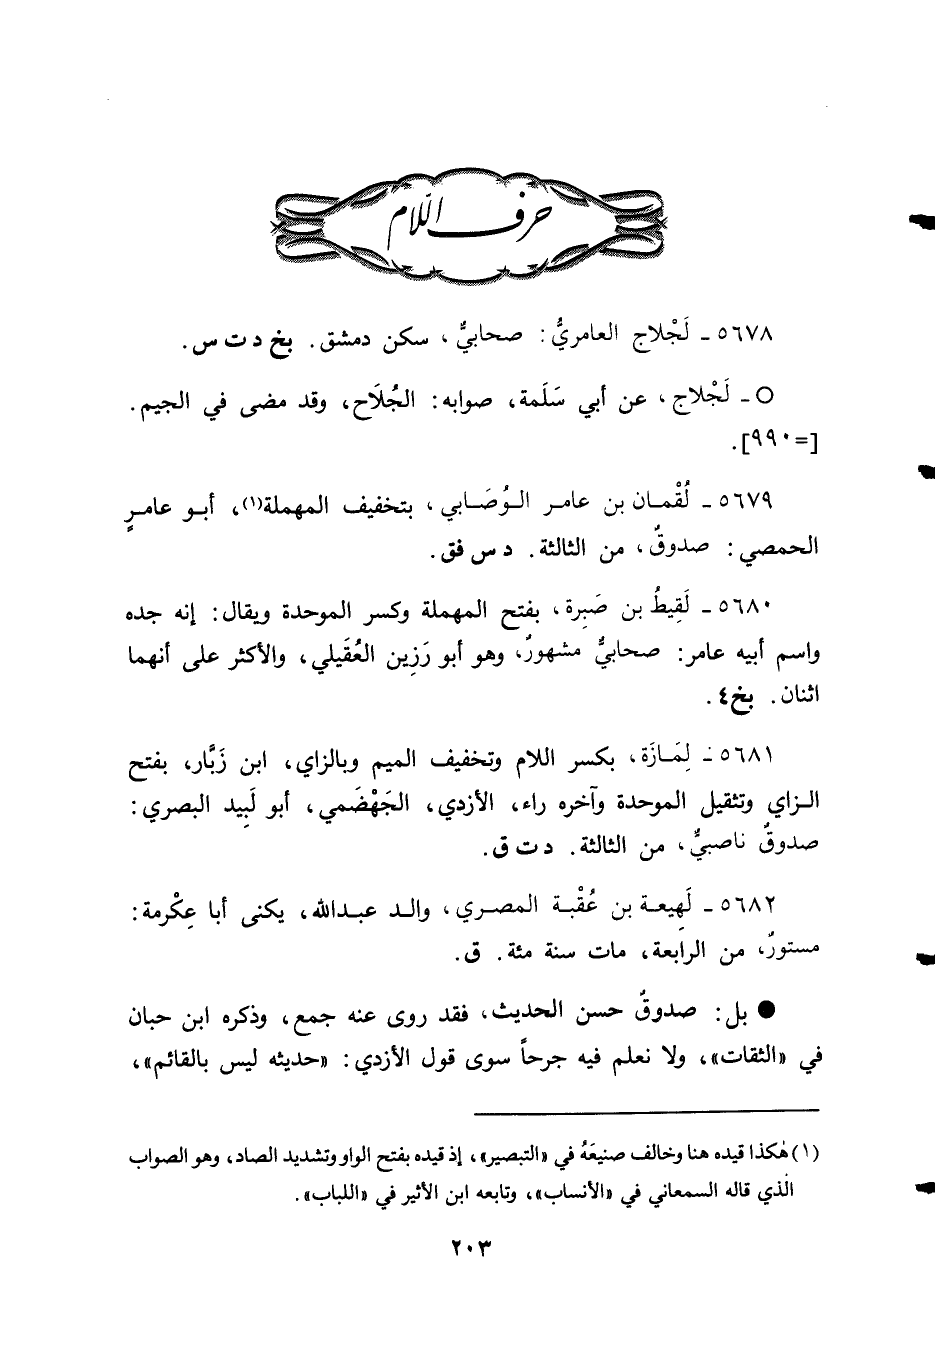 حرف اللام
٥٦٧٨ ـ لَجْلاج العامريُّ: صحابيٌّ، سكن دمشق. بخ د ت س.
○ ـ لَجْلاج، عن أبي سَلَمة، صوابه: الجُلَاح، وقد مضى في الجيم.
[=٩٩٠].
٥٦٧٩ ـ لُقْمـان بن عامـر الـوُصَـابي، بتخفيف المهملة(١)، أبـو عامـرٍ
الحمصي: صدوقٌ، من الثالثة. د س فق.
٥٦٨٠ ـ لَقِيطُ بن صَبِرة، بفتح المهملة وكسر الموحدة ويقال: إنه جده
واسم أبيه عامر: صحابيٌّ مشهورٌ، وهو أبو رَزِين العُقَيلي، والأكثر على أنهما
اثنان. بخ٤.
٥٦٨١ ـ لِمَـازَة، بكسر اللام وتخفيف الميم وبالزاي، ابن زَبَّار، بفتح
الـزاي وتثقيل الموحدة وآخره راء، الأزدي، الجَهْضَمي، أبو لَبِيد البصري:
صدوقٌ ناصبيٌّ، من الثالثة. د ت ق.
٥٦٨٢ ـ لَهِيعـة بن عُقْبـة المصـري، والـد عبـدالله، يكنى أبا عِكْرمة:
مستورٌ، من الرابعة، مات سنة مئة. ق.
● بل: صدوقٌ حسن الحديث، فقد روى عنه جمع، وذكره ابن حبان
في «الثقات»، ولا نعلم فيه جرحاً سوى قول الأزدي: «حديثه ليس بالقائم»،
(١) هٰكذا قيده هنا وخالف صنيعَهُ في «التبصير»، إذ قيده بفتح الواو وتشديد الصاد، وهو الصواب
الذي قاله السمعاني في «الأنساب»، وتابعه ابن الأثير في «اللباب».
٢٠٣